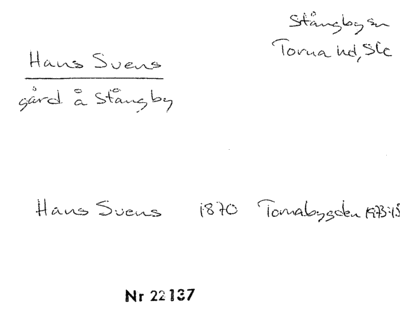 Stångby sn
Torna hd, Sk
Hans Svens
gård å Stångby
Hans Svens 1870 Tornabygden 1973:13
Nr 22137